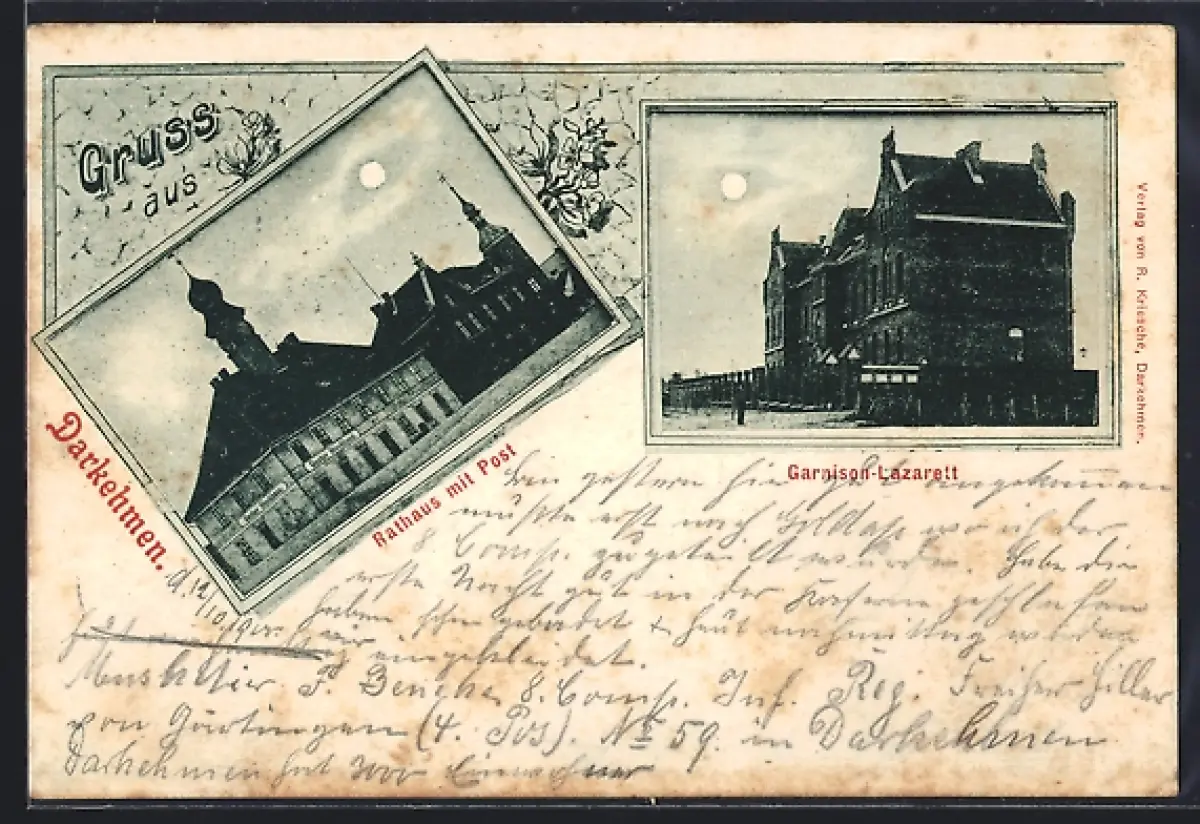 Gruss
aus
Darkehmen.
Rathaus mit Post
Garnison-Lazarett
Verlag von R. Kriesche, Darkehmen.
d. 12/10 19
Bin gestern hier angekommen
mußte erst nach Goldap wo ich der
8 Comp. zugeteilt wurde. Habe die
erste Nacht gut in der Kaserne geschlafen
haben schon gebadet + heut nachmittag werden
wir eingekleidet.
Musketier F. Beneke 8. Comp. Inf. Reg. Freiherr Hiller
von Gärtringen (4. Pos). No 59. in Darkehmen
Darkehmen hat Einwohner